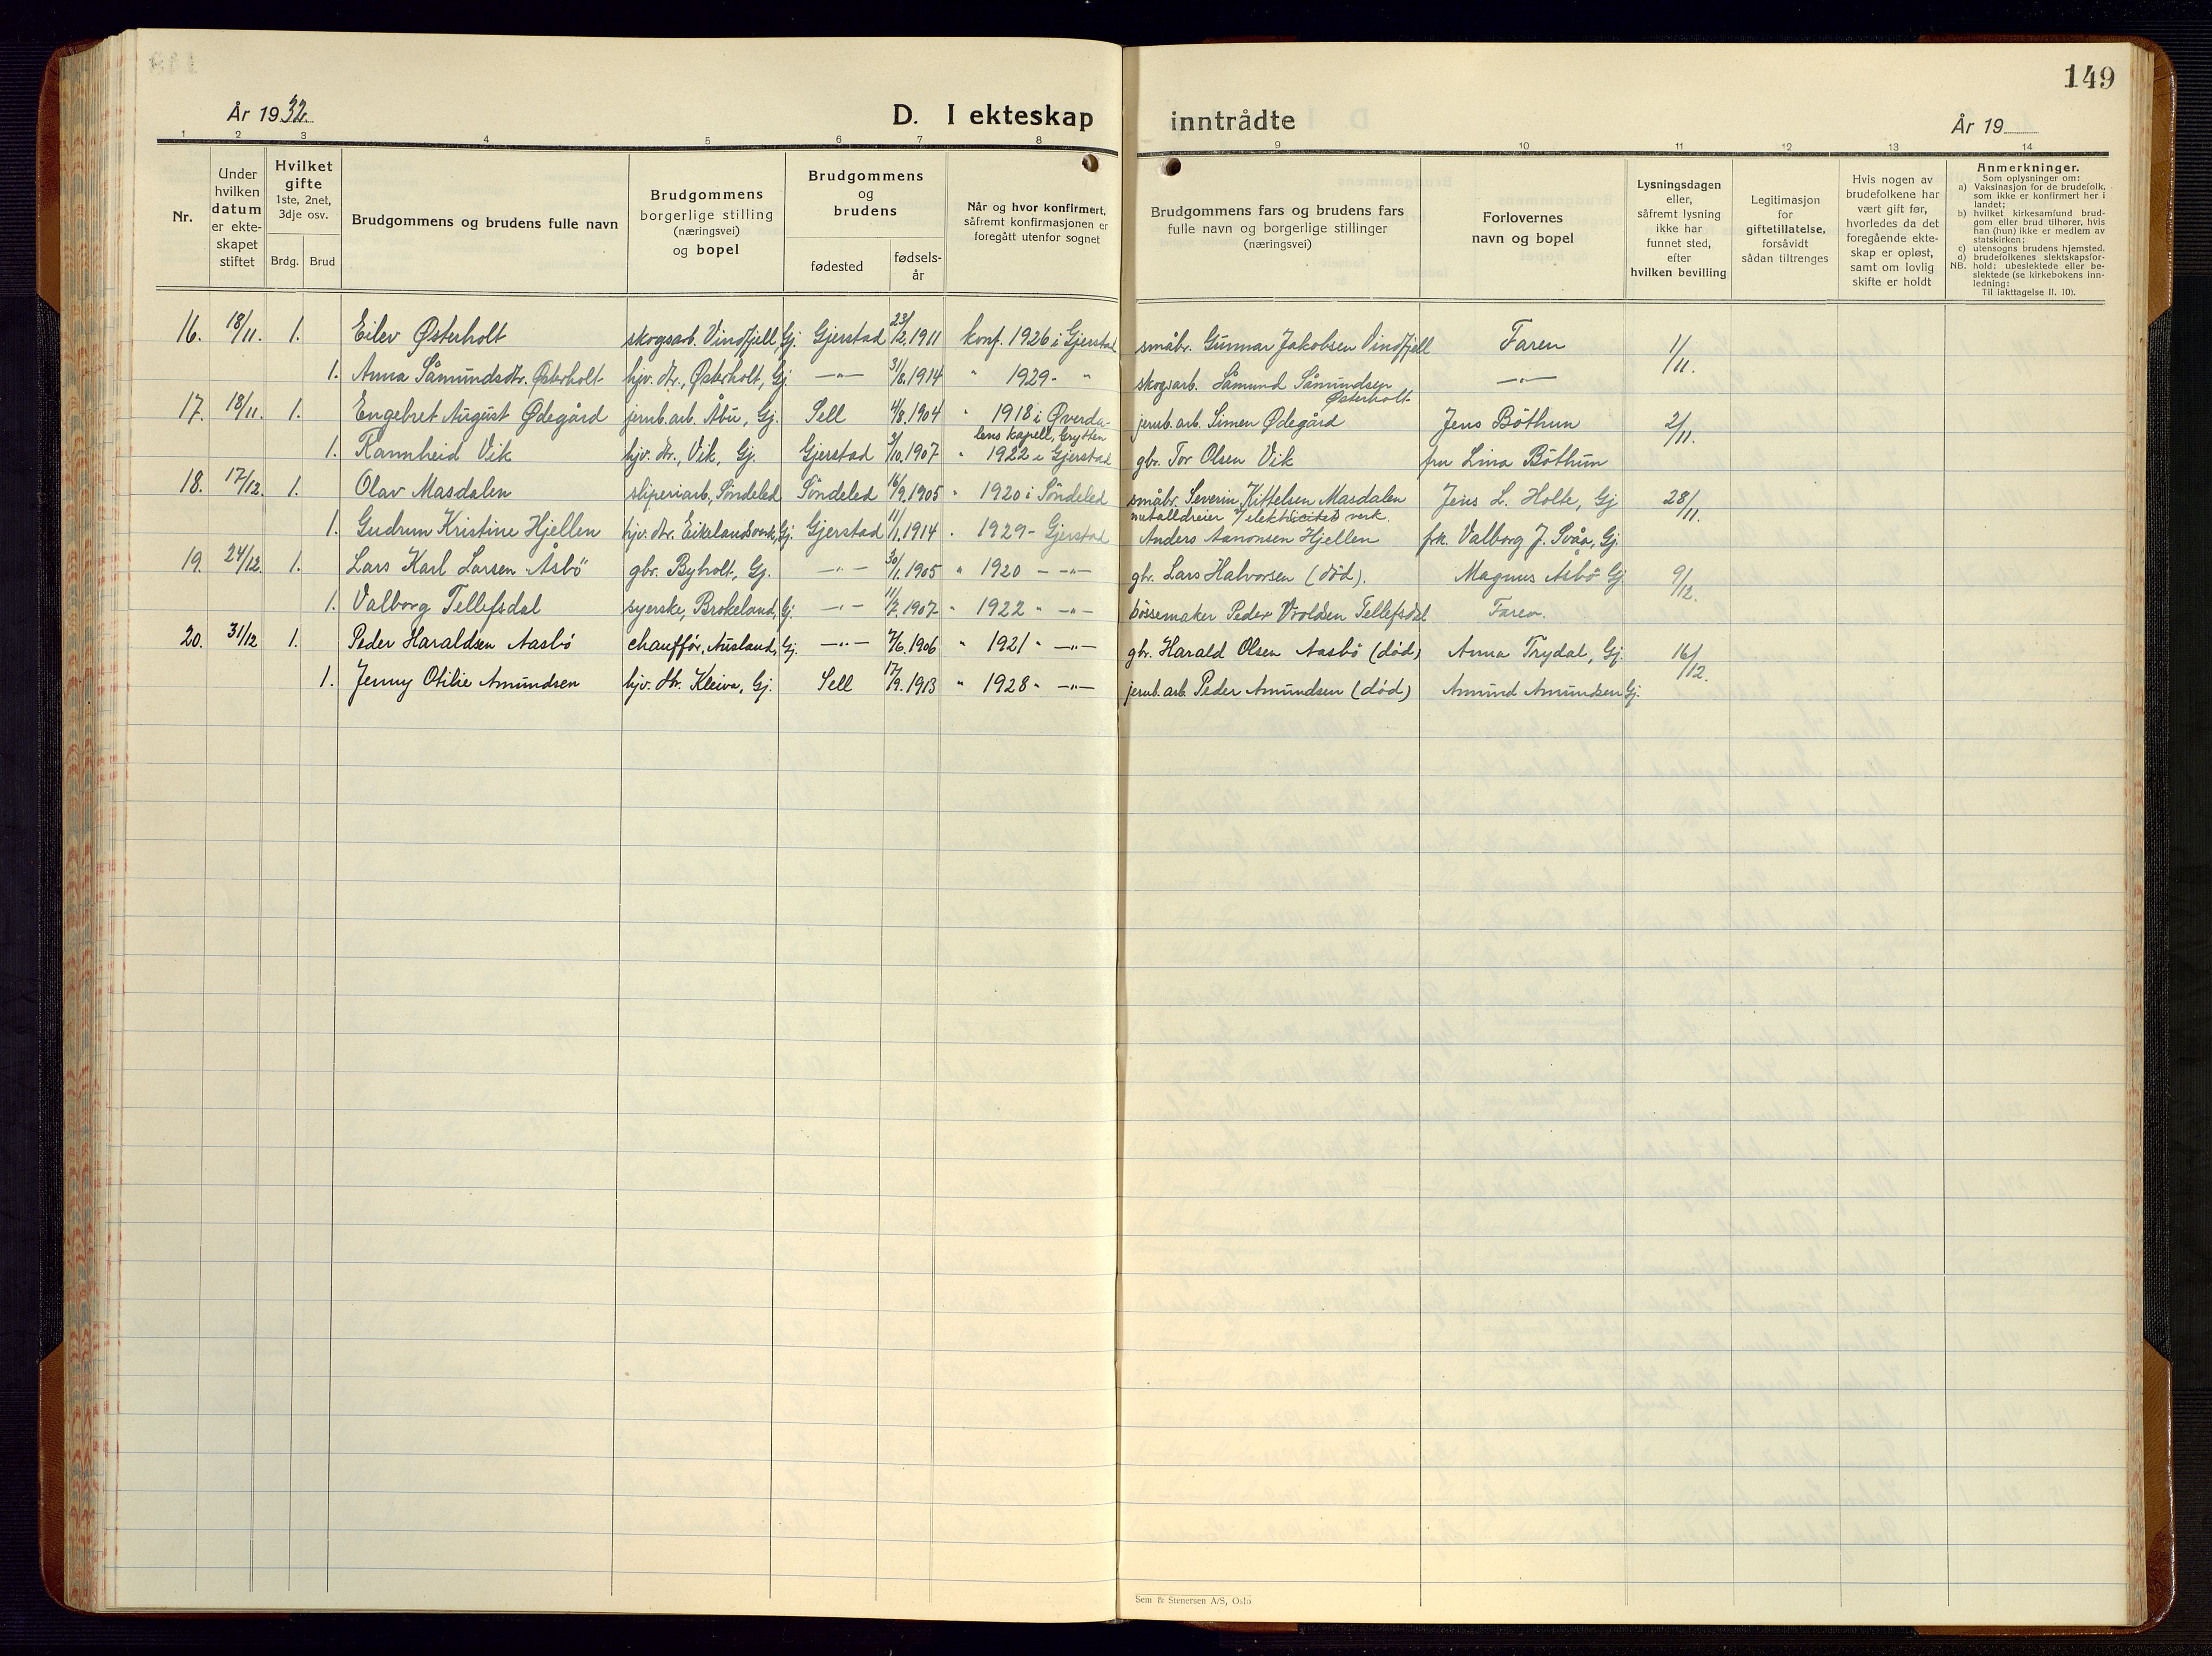 149
År 1932.
D. I ekteskap inntrådte
År 19
1 2 3 4 5 6 7 8 9 10 11 12 13 14
Nr.
Under hvilken datum er ekteskapet stiftet
Hvilket gifte 1ste, 2net, 3dje osv.
Brdg. Brud
Brudgommens og brudens fulle navn
Brudgommens borgerlige stilling (næringsvei) og bopel
Brudgommens og brudens
fødested
fødselsår
Når og hvor konfirmert, såfremt konfirmasjonen er foregått utenfor sognet
Brudgommens fars og brudens fars fulle navn og borgerlige stillinger (næringsvei)
Forlovernes navn og bopel
Lysningsdagen eller, såfremt lysning ikke har funnet sted, efter hvilken bevilling
Legitimasjon for giftetillatelse, forsåvidt sådan tiltrenges
Hvis nogen av brudefolkene har vært gift før, hvorledes da det foregående ekteskap er opløst, samt om lovlig skifte er holdt
Anmerkninger.
Som oplysninger om:
a) Vaksinasjon for de brudefolk, som ikke er konfirmert her i landet;
b) hvilket kirkesamfund brudgom eller brud tilhører, hvis han (hun) ikke er medlem av statskirken;
c) utensogns brudens hjemsted.
d) brudefolkenes slektskapsforhold: ubeslektede eller beslektede (se kirkebokens innledning:
NB. Til iakttagelse II. 10).
16. 18/11. 1. Eilev Østerholt skogsarb. Vindfjell Gj. Gjerstad 23/2.1911 konf. 1926 i Gjerstad småbr. Gunnar Jakobsen Vindfjell Faren 1/11.
1. Anna Såmundsdtr. Østerholt hjv. dtr., Østerholt, Gj. —"— 31/8.1914 " 1929 - " skogsarb. Såmund Såmundsen Østerholt —"—
17. 18/11. 1. Engebret August Ødegård jernb.arb. Åbu, Gj. Sell 4/8.1904 " 1918 i Øverdalens kapell, Grytten jernb.arb. Simen Ødegård Jens Böthun 2/11.
1. Rannheid Vik hjv. dtr., Vik, Gj. Gjerstad 3/10.1907 " 1922 i Gjerstad gbr. Tor Olsen Vik fru Lina Böthun
18. 17/12. 1. Olav Masdalen sliperiarb., Söndeled Söndeled 16/9.1905 " 1920 i Söndeled småbr. Severin Kittelsen Masdalen Jens L. Holte, Gj 28/11.
1. Gudrun Kristine Hjellen hjv. dtr. Eikelandsverk, Gj. Gjerstad 11/1.1914 " 1929 - Gjerstad metalldreier v/ elektricitets verk. Anders Aanonsen Hjellen frk. Valborg J. Svåa, Gj.
19. 24/12. 1. Lars Karl Larsen Åsbö gbr. Byholt, Gj. —"— 30/1.1905 " 1920 - —"— gbr. Lars Halvorsen (död). Magnus Asbö Gj 9/12.
1. Valborg Tellefsdal syerske, Brokeland, Gj. —"— 11/7.1907 " 1922 " —"— bössemaker Peder Vroldsen Tellefsdal Faren.
20. 31/12 1. Peder Haraldsen Aasbö chaufför, Ausland, Gj. —"— 7/6.1906 " 1921 " —"— gbr. Harald Olsen Aasbö (död) Anna Trydal, Gj. 16/12.
1. Jenny Otilie Amundsen hjv. dtr. Kleiva, Gj. Sell 17/9.1913 " 1928 " —"— jernb.arb. Peder Amundsen (död) Amund Amundsen Gj.
Sem & Stenersen A/S, Oslo